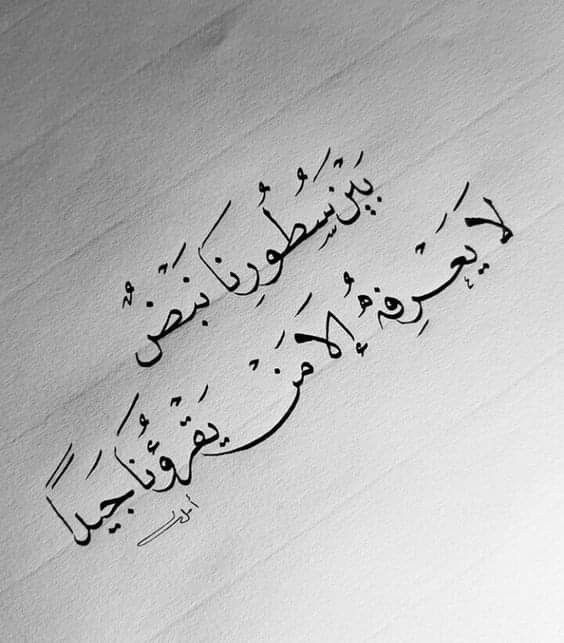 بَيْن سُطُورِنَا نَبَضٌ
لَا يَعْرِفهُ إلا مَنْ يَقْرَؤُنَا جَيداً